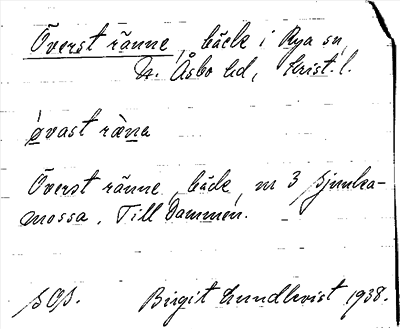 Överst ränne, bäck i Rya sn,
N. Åsbo hd, Krist. l.
øvast ræna
Överst ränne, bäck, nr 3 Sjunka-
mossa. Till Dammen.
SOS. Birgit Lundkvist 1938.